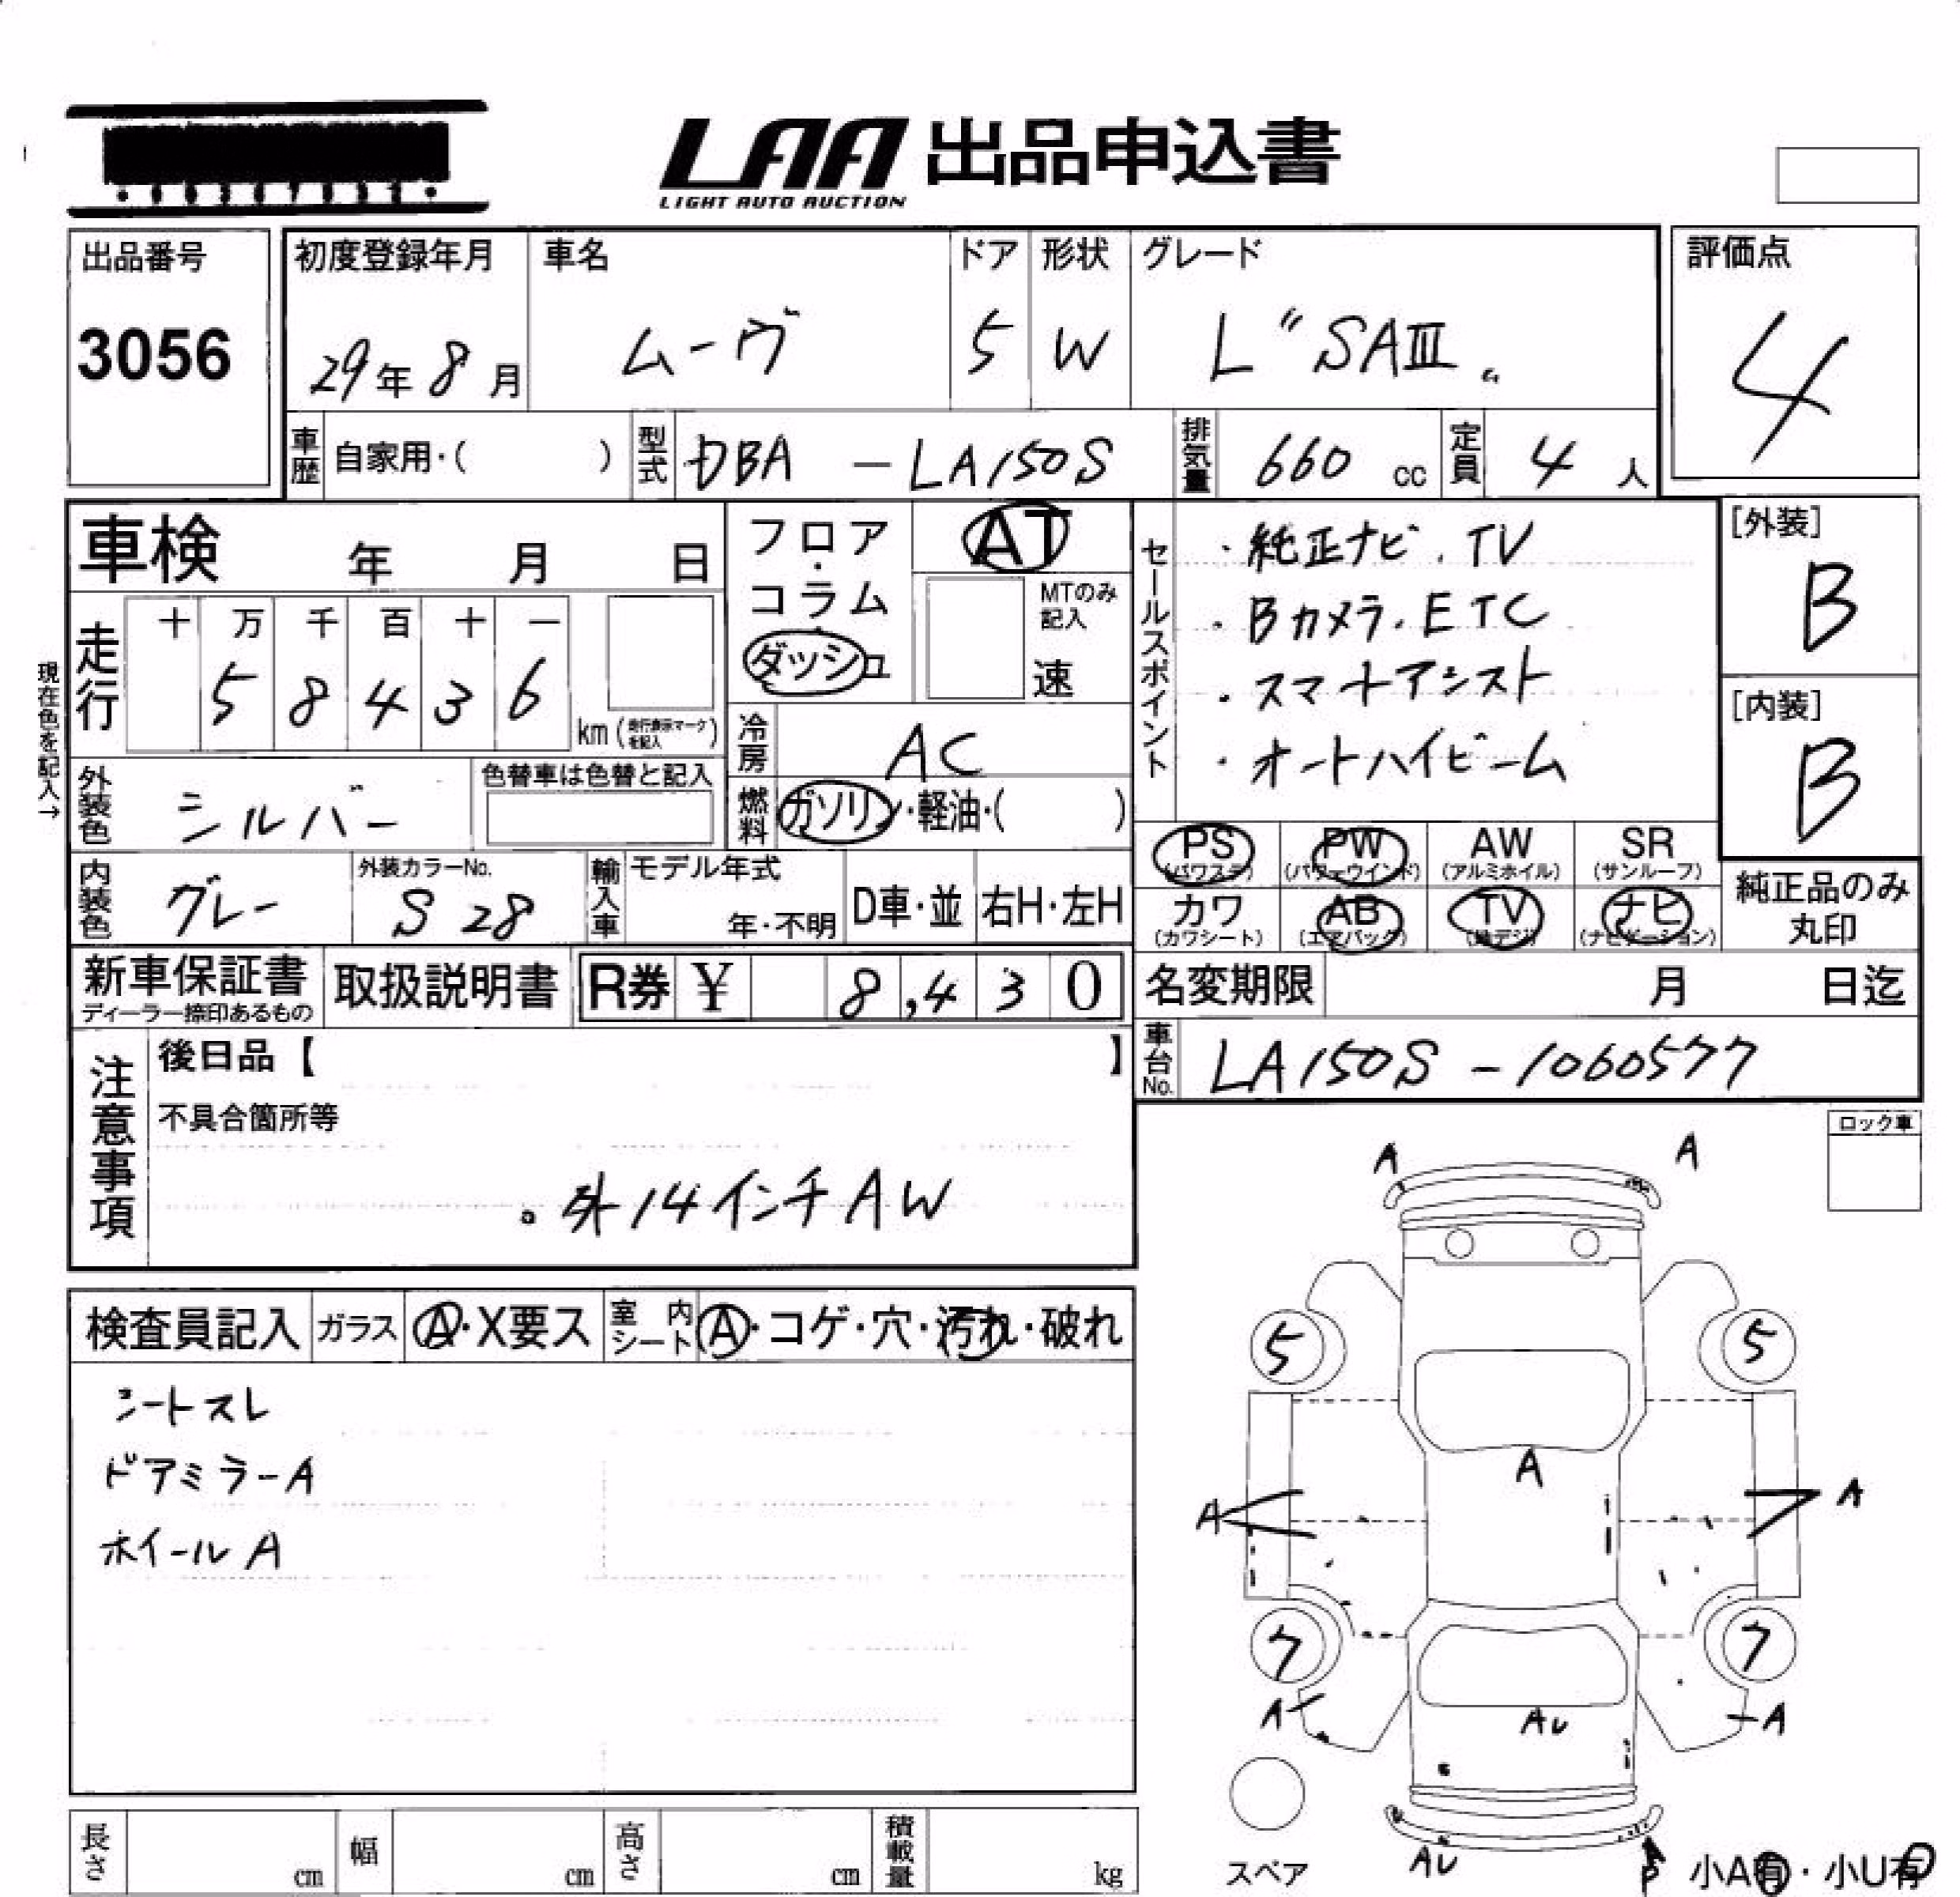 LAA 出品申込書
LIGHT AUTO AUCTION
出品番号
3056
初度登録年月
29年 8月
車名
ムーヴ
ドア
5
形状
W
グレード
L" SAIII 〃
評価点
4
車歴 自家用・( )
型式 DBA - LA150S
排気量 660 cc
定員 4 人
車検 年 月 日
フロア・コラム・ダッシュ
AT
MTのみ記入
速
セールスポイント
・純正ナビ．TV
・Bカメラ．ETC
・スマートアシスト
・オートハイビーム
[外装]
B
[内装]
B
現在色を記入→
走行
十 万 千 百 十 一
5 8 4 3 6
km (走行表示マークを記入)
冷房 AC
燃料 ガソリン・軽油・( )
外装色 シルバー
色替車は色替と記入
PS (パワステ)
PW (パワーウインド)
AW (アルミホイル)
SR (サンルーフ)
カワ (カワシート)
AB (エアバッグ)
TV (地デジ)
ナビ (ナビゲーション)
純正品のみ丸印
内装色 グレー
外装カラーNo.
S28
輸入車 モデル年式
年・不明
D車・並
右H・左H
新車保証書
ディーラー捺印あるもの
取扱説明書
R券 ¥ 8,430
名変期限 月 日迄
車台No. LA150S - 1060577
注意事項
後日品【 】
不具合箇所等
。外14インチAW
ロック車
検査員記入
ガラス A・X要ス
室内シート A・コゲ・穴・汚れ・破れ
シートスレ
ドアミラーA
ホイールA
A A
5 5
A
A A
7 7
A AU A
AU P
スペア
小A有・小U有
長さ cm
幅 cm
高さ cm
積載量 kg